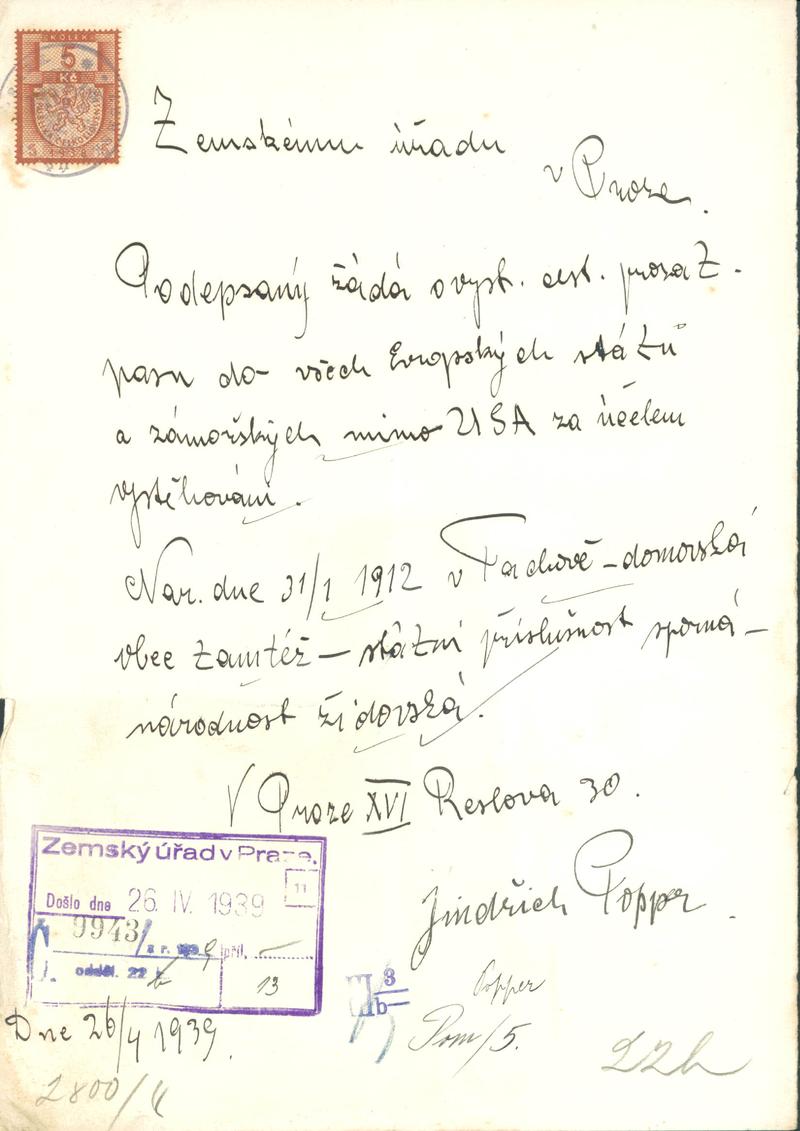 KOLEK
5
Kč
Zemskému úřadu
v Praze.
Podepsaný žádá o vyst. cest. prozat-
pasu do všech Evropských států
a zámořských mimo USA za účelem
vystěhování.
Nar. dne 31/1 1912 v Tachově – domovská
obec tamtéž – státní příslušnost sporná –
národnost židovská.
V Praze XVI Reslova 30.
Jindřich Popper.
Zemský úřad v Praze.
11
Došlo dne 26. IV. 1939
9943/ příl. –
odděl. 22 13
II 3
b
Popper
Pom/5.
Dne 26/4 1939.
22b
2800/